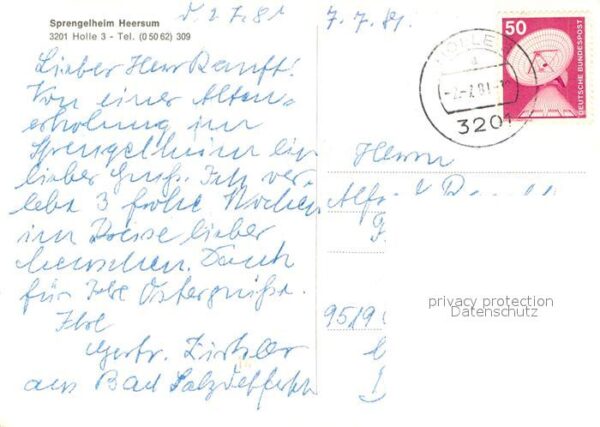 Sprengelheim Heersum
3201 Holle 3 - Tel. (0 50 62) 309
d. 2.7.81
7.7.81.
Lieber Herr Ranft!
Von einer Alten-
erholung im
Sprengelheim ein
lieber Gruß. Ich ver-
lebe 3 frohe Wochen
im Kreise lieber
Menschen. Dank
für Ihre Ostergrüße.
Ihre
Gertr.
aus Bad Salzdetfurth
HOLLE
a
-2.-7.81-
3201
50
DEUTSCHE BUNDESPOST
Herrn
privacy protection
Datenschutz